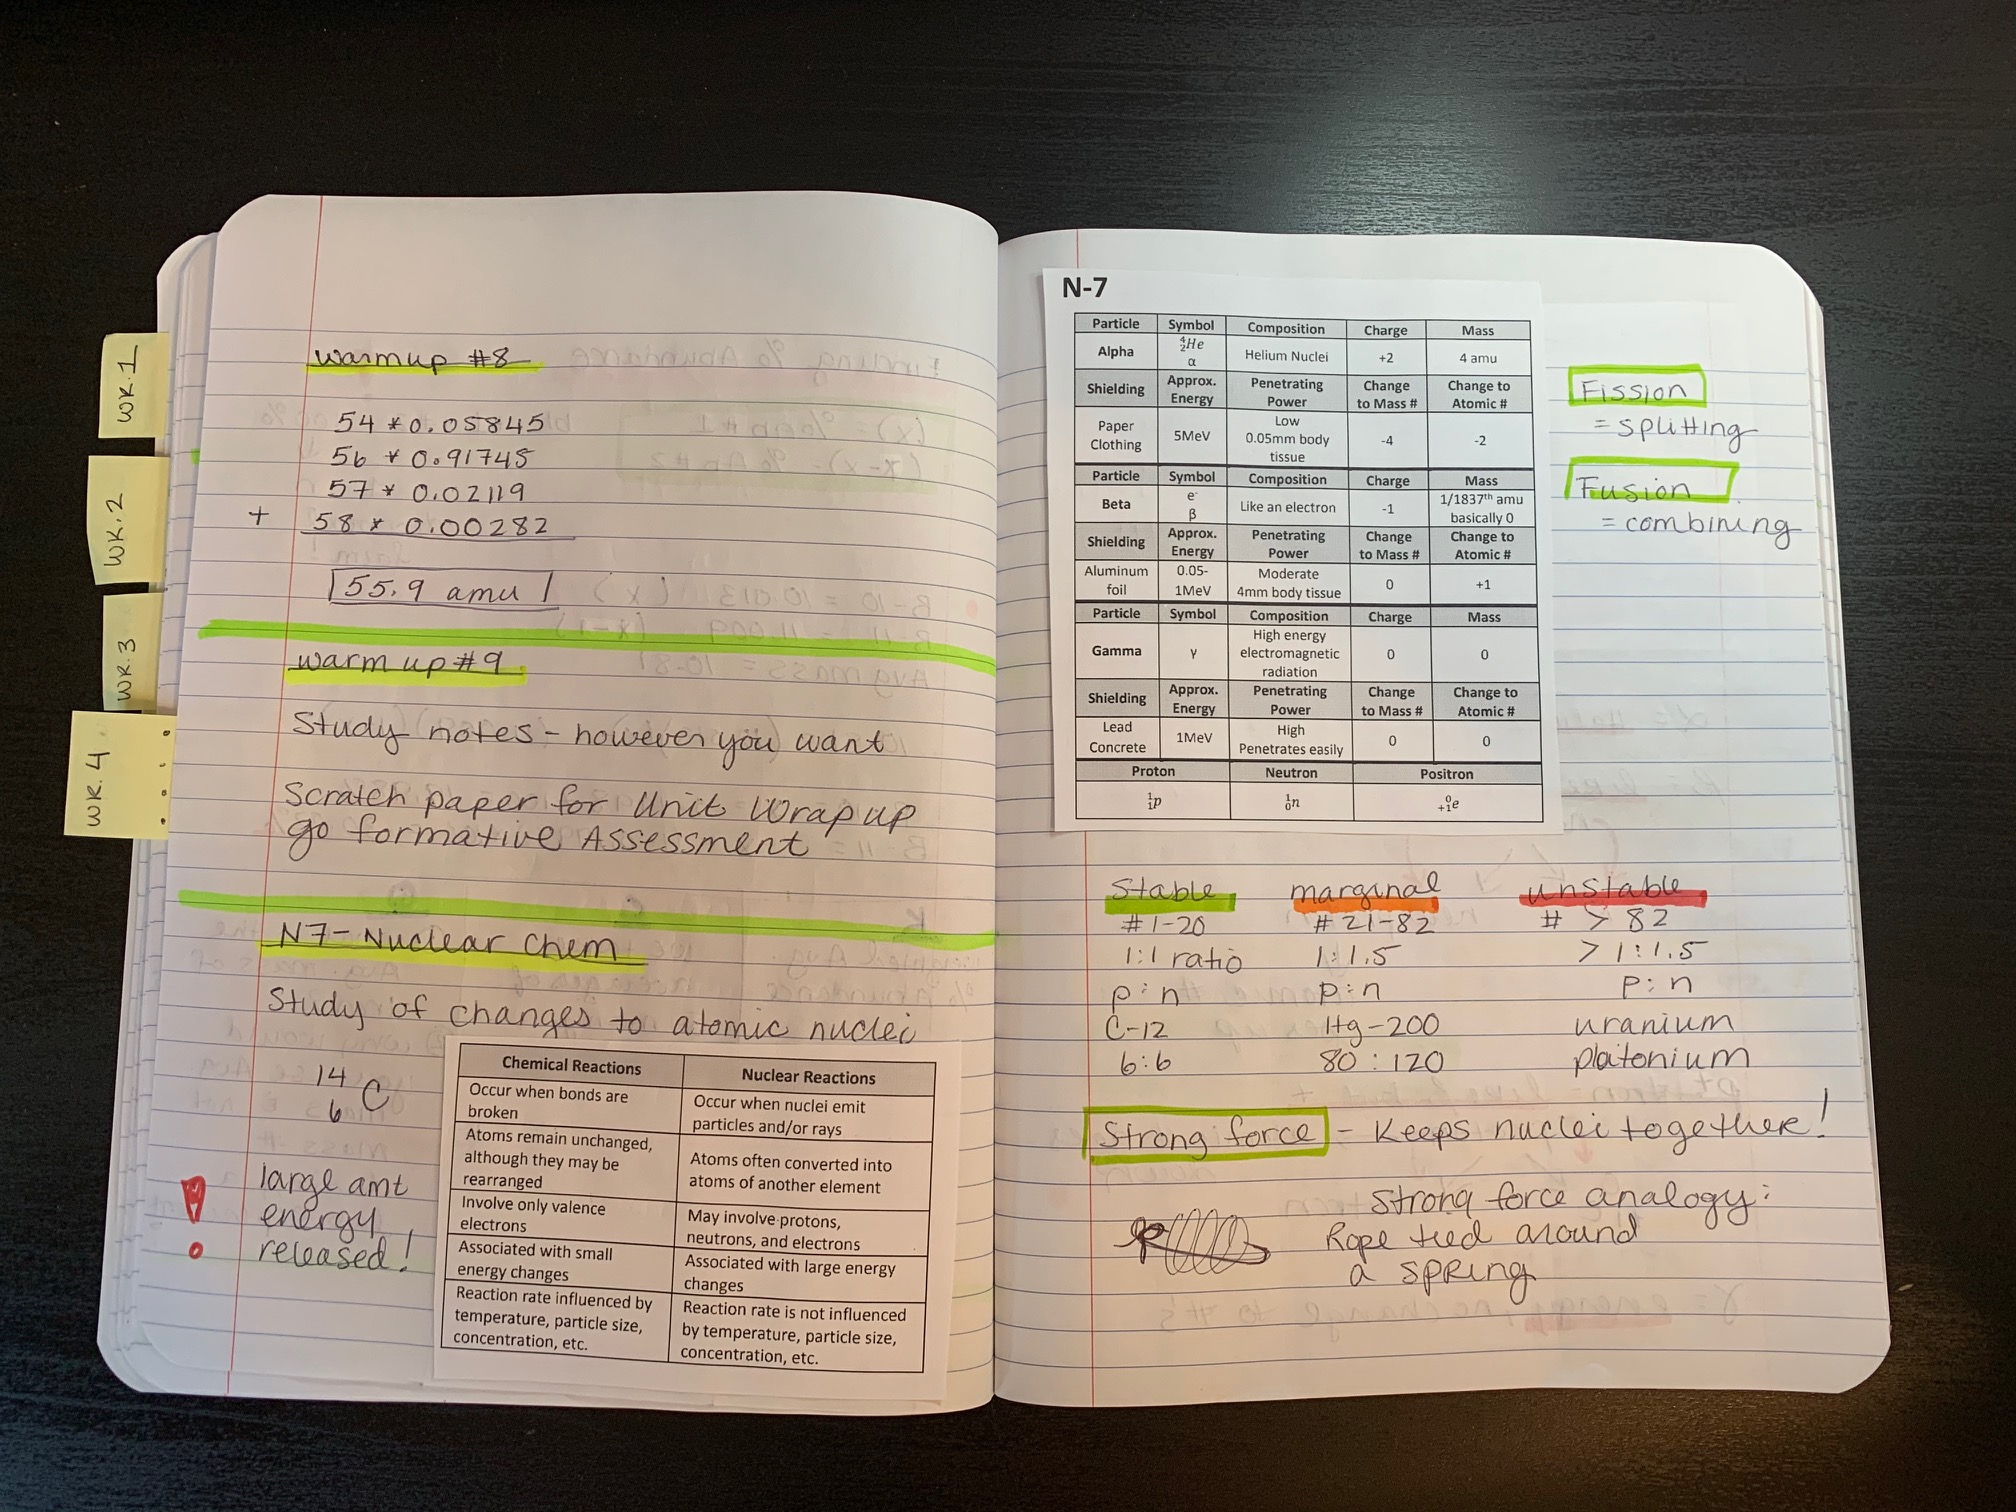 WK.1
WK.2
WK.3
WK.4
warmup #8
54 * 0.05845
56 * 0.91745
57 * 0.02119
+ 58 * 0.00282
55.9 amu
warm up #9
Study notes - however you want
Scratch paper for Unit Wrap up
go formative Assessment
N7 - Nuclear Chem
Study of changes to atomic nuclei
14
6 C
large amt
energy
released!
Chemical Reactions Nuclear Reactions
Occur when bonds are
broken
Occur when nuclei emit
particles and/or rays
Atoms remain unchanged,
although they may be
rearranged
Atoms often converted into
atoms of another element
Involve only valence
electrons
May involve protons,
neutrons, and electrons
Associated with small
energy changes
Associated with large energy
changes
Reaction rate influenced by
temperature, particle size,
concentration, etc.
Reaction rate is not influenced
by temperature, particle size,
concentration, etc.
N-7
Particle Symbol Composition Charge Mass
Alpha ⁴₂He α Helium Nuclei +2 4 amu
Shielding Approx. Energy Penetrating Power Change to Mass # Change to Atomic #
Paper Clothing 5MeV Low 0.05mm body tissue -4 -2
Particle Symbol Composition Charge Mass
Beta e⁻ β Like an electron -1 1/1837th amu basically 0
Shielding Approx. Energy Penetrating Power Change to Mass # Change to Atomic #
Aluminum foil 0.05-1MeV Moderate 4mm body tissue 0 +1
Particle Symbol Composition Charge Mass
Gamma γ High energy electromagnetic radiation 0 0
Shielding Approx. Energy Penetrating Power Change to Mass # Change to Atomic #
Lead Concrete 1MeV High Penetrates easily 0 0
Proton Neutron Positron
¹₁p ¹₀n ⁰₊₁e
Fission
= splitting
Fusion
= combining
Stable marginal unstable
#1-20 #21-82 # > 82
1:1 ratio 1:1.5 >1:1.5
p:n p:n p:n
C-12 Hg-200 uranium
6:6 80:120 platonium
Strong force - Keeps nuclei together!
Strong force analogy:
Rope tied around
a spring